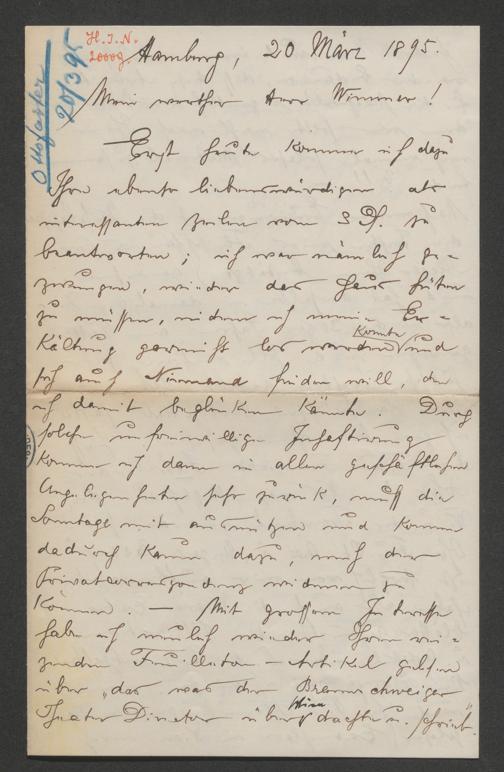 H. I. N.
20009
Otto Jaster
20/3 95
Hamburg, 20 März 1895.
Mein werther Herr Wimmer!
Erst heute komme ich dazu
Ihre ebenso liebenswürdigen als
interessanten Zeilen vom 3 Ds. zu
beantworten; ich war nämlich ge-
zwungen, wieder das Haus hüten
zu müssen, indem ich meine Er-
kältung garnicht los werden konnte und
sich auch Niemand finden will, den
ich damit beglücken könnte. Durch
solche unfreiwillige Inhaftirung
komme ich dann in allen geschäftlichen
Angelegenheiten sehr zurück, muß die
Sonntage mit ausnützen und komme
dadurch kaum dazu, mich der
Privatcorrespondenz widmen zu
können. — Mit grossem Interesse
habe ich neulich wieder Ihren rei-
zenden Feuilleton-Artikel gelesen
über "das was der Braunschweiger
Theater Director über Wien dachte u. schrieb."